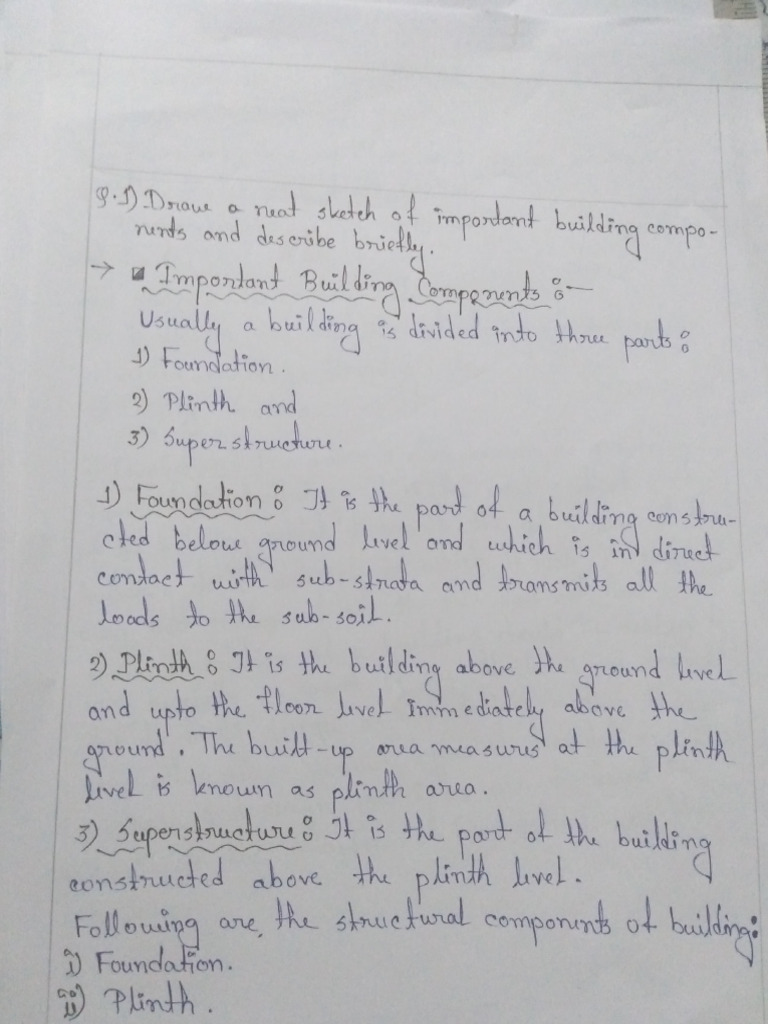 Q.1) Draw a neat sketch of important building compo-
nents and describe briefly.
→ ▪ Important Building Components :-
Usually a building is divided into three parts :
1) Foundation.
2) Plinth and
3) Superstructure.
1) Foundation : It is the part of a building constru-
cted below ground level and which is in direct
contact with sub-strata and transmits all the
loads to the sub-soil.
2) Plinth : It is the building above the ground level
and upto the floor level immediately above the
ground. The built-up area measures at the plinth
level is known as plinth area.
3) Superstructure : It is the part of the building
constructed above the plinth level.
Following are, the structural components of building:
i) Foundation.
ii) Plinth.